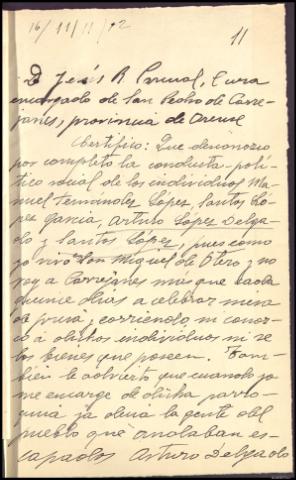 16/11/11/42
11
D. Jesús R. Pascual, Cura
encargado de San Pedro de Carre-
janes, provincia de Orense
Certifico: Que desconozco
por completo la conducta polí-
tico social de los individuos Ma-
nuel Fernández López, Santos Ló-
pez García, Arturo López Delga-
do y Santos López, pues como
yo vivo San Miguel de Otero y no
voy a Carrejanes mas que cada
quince dias a celebrar misa
de prisa, corriendo, ni conoz-
co á dichos individuos ni se
los bienes que poseen. Tam-
bien le advierto que cuando yo
me encargé de dicha parro-
quia ya decia la gente del
pueblo que andaban es-
capados Arturo Delgado